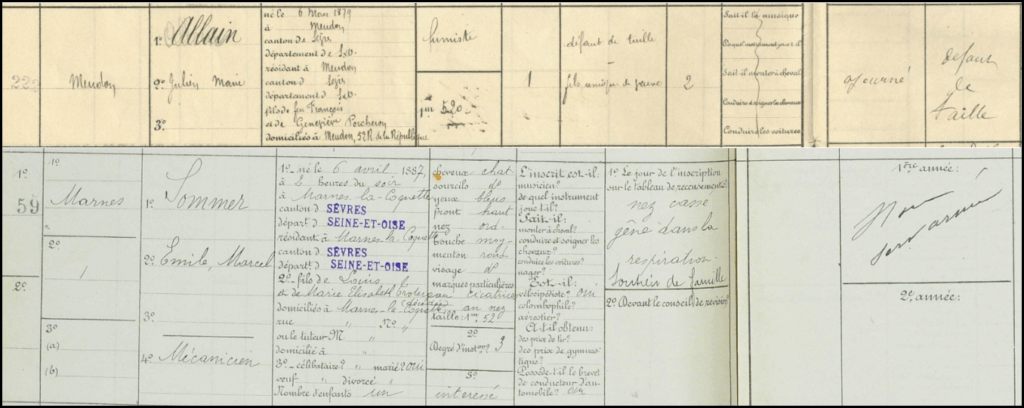 222
Meudon
1o Allain
2o Julien Marie
3o
né le 6 Mars 1879
à Meudon
canton de Sèvres
département de S&O
résidant à Meudon
canton de
département de S&O
fils de feu François
et de Geneviève Porcheron
domiciliés à Meudon, 52 R. de la République
fumiste
1m 520
1
défaut de taille
fils unique de
2
Sait-il la musique
Sait-il monter à cheval
Conduire et soigner les chevaux
Conduire les voitures
ajourné
défaut
de
taille
1o
59
2o
1o
Marnes
2o
3o
(a)
(b)
1o Sommer
2o Emile, Marcel
3o
4o Mécanicien
1o né le 6 avril 1887,
à 2 heures du soir
à Marnes-la-Coquette
canton d SÈVRES
départt d SEINE-ET-OISE
résidant à Marnes-la-Coquette
canton d SÈVRES
départt d SEINE-ET-OISE
2o fils de Louis
et de Marie Elisabeth
domiciliés à Marnes-la-Coquette
rue " No "
ou le tuteur M "
domicilié à "
3o célibataire? " marié? oui
veuf " divorcé "
Nombre d'enfants un
cheveux chat
sourcils do
yeux bleus
front haut
nez ord.
bouche moy.
menton rond
visage
marques particulières
cicatrice
au nez
taille: 1m 52
2o
Degré d'instron? 3
3o
intéressé
L'inscrit est-il:
musicien?
de quel instrument
joue-t-il?
Sait-il:
monter à cheval?
conduire et soigner les
chevaux?
conduire les voitures?
nager?
Est-il:
vélocipédiste? oui
colombophile?
aérostier?
A-t-il obtenu:
des prix de tir?
des prix de gymnas-
tique?
Possède-t-il le brevet
de conducteur d'au-
tomobile? oui
1o Le jour de l'inscription
sur le tableau de recensement:
nez cassé
gêne dans la
respiration
Soutien de famille
2o Devant le conseil de révision:
1ère année:
Bon
serv armé
2e année: